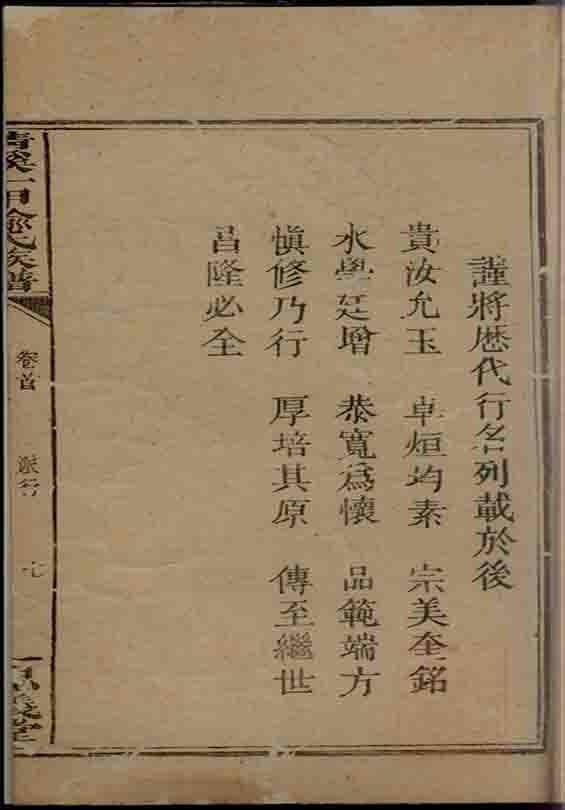 謹將歷代行名列載於後
貴汝允玉 卓烜灼素 宗美奎銘
水學廷增 恭寬爲懷 品範端方
慎修乃行 厚培其原 傳至繼世
昌隆必全
氏族譜
卷首 派行 七
堂